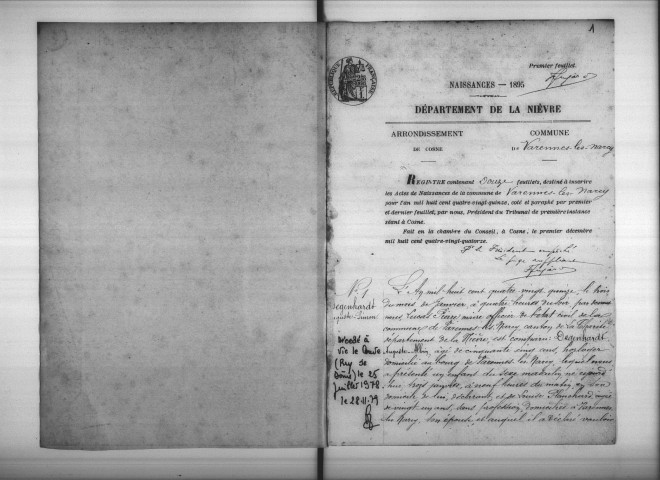 1
RÉPUBLIQUE FRANÇAISE
Premier feuillet.
NAISSANCES — 1895
DÉPARTEMENT DE LA NIÈVRE
ARRONDISSEMENT
DE COSNE
COMMUNE
DE Varennes les Narcy
REGISTRE contenant Douze feuillets, destiné à inscrire
les Actes de Naissances de la commune de Varennes les Narcy
pour l'an mil huit cent quatre-vingt-quinze, coté et paraphé par premier
et dernier feuillet, par nous, Président du Tribunal de première instance
séant à Cosne.
Fait en la chambre du Conseil, à Cosne, le premier décembre
mil huit cent quatre-vingt-quatorze.
Pr le Président empêché
Le juge suppléant
N° 1
Degenhardt
décédé à
Vic le Comte
(Puy de
Dôme) le 25
juillet 1978
le 28.11.79
L'An mil huit cent quatre vingt quinze, le trois
du mois de Janvier, à quatre heures du soir, par devant
nous maire officier de l'état civil de la
commune de Varennes les Narcy canton de la Charité
département de la Nièvre, est comparu Degenhardt
Auguste âgé de cinquante cinq ans, horloger
domicilié au bourg de Varennes les Narcy, lequel nous
a présenté un enfant du sexe masculin né
trois janvier, à neuf heures du matin, en son
domicile de lui, déclarant, et de Louise Blanchard, âgée
de vingt ans, sans profession, domiciliée à Varennes
les Narcy, son épouse, et auquel il a déclaré vouloir